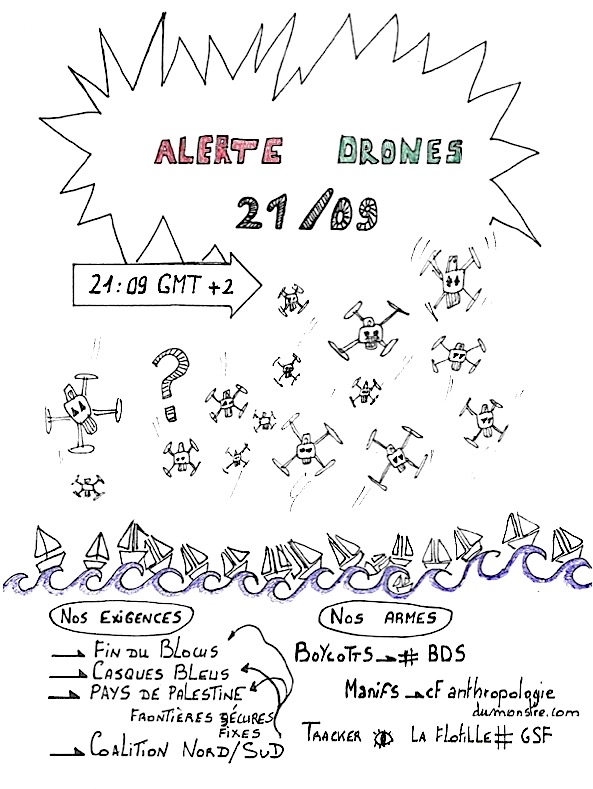 ALERTE DRONES
21/09
21:09 GMT +2
?
NOS EXIGENCES
FIN DU BLOCUS
CASQUES BLEUS
PAYS DE PALESTINE
FRONTIÈRES SÉCURES
FIXES
COALITION NORD/SUD
NOS ARMES
BOYCOTTS # BDS
MANIFS cf anthropologie
dumonstre.com
TRACKER LA FLOTILLE # GSF